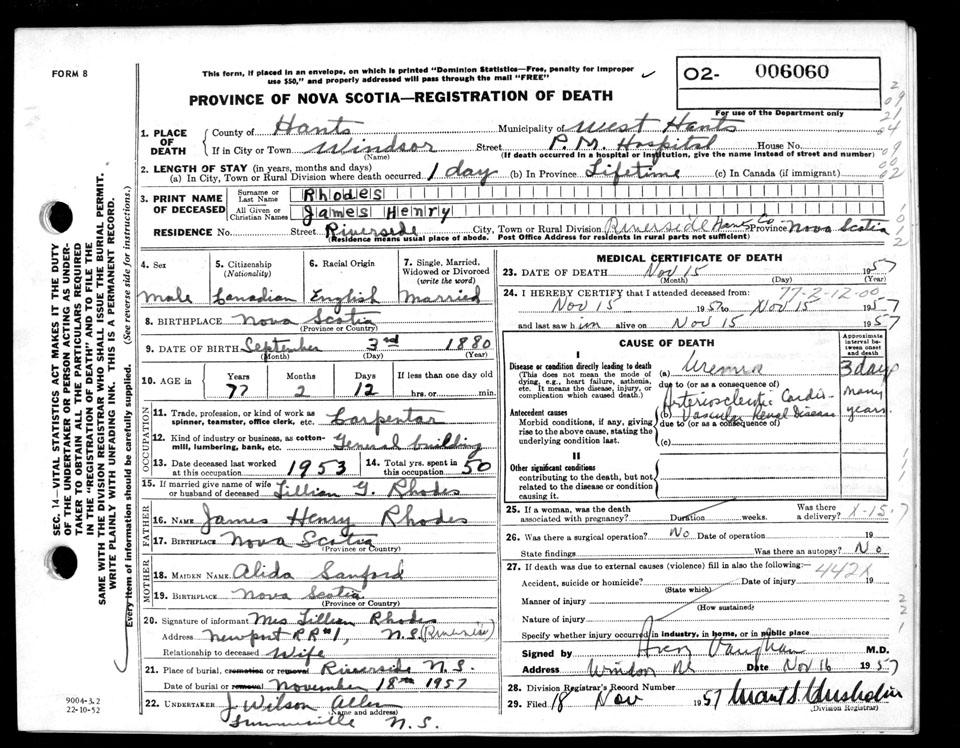 FORM 8
This form, if placed in an envelope, on which is printed "Dominion Statistics—Free, penalty for improper
use $50," and properly addressed will pass through the mail "FREE"
PROVINCE OF NOVA SCOTIA—REGISTRATION OF DEATH
02- 006060
For use of the Department only
1. PLACE OF DEATH
County of Hants Municipality of West Hants
If in City or Town Windsor Street P.M. Hospital House No.
(Name) (If death occurred in a hospital or institution, give the name instead of street and number)
2. LENGTH OF STAY (in years, months and days)
(a) In City, Town or Rural Division where death occurred 1 day (b) In Province Lifetime (c) In Canada (if immigrant)
3. PRINT NAME OF DECEASED
Surname or Last Name Rhodes
All Given or Christian Names James Henry
RESIDENCE No. Street Riverside City, Town or Rural Division Riverside Hants Co Province Nova Scotia
(Residence means usual place of abode. Post Office Address for residents in rural parts not sufficient)
4. Sex 5. Citizenship (Nationality) 6. Racial Origin 7. Single, Married, Widowed or Divorced (write the word)
Male Canadian English Married
8. BIRTHPLACE Nova Scotia
(Province or Country)
9. DATE OF BIRTH September 3rd 1880
(Month) (Day) (Year)
10. AGE in Years Months Days If less than one day old
77 2 12 hrs. or min.
OCCUPATION
11. Trade, profession, or kind of work as spinner, teamster, office clerk, etc. Carpentar
12. Kind of industry or business, as cotton-mill, lumbering, bank, etc. General building
13. Date deceased last worked at this occupation 1953 14. Total yrs. spent in this occupation 50
15. If married give name of wife or husband of deceased Lillian G. Rhodes
FATHER
16. NAME James Henry Rhodes
17. BIRTHPLACE Nova Scotia
(Province or Country)
MOTHER
18. MAIDEN NAME Alida Sanford
19. BIRTHPLACE Nova Scotia
(Province or Country)
20. Signature of informant Mrs Lillian Rhodes
Address Newport RR#1, N.S. (Riverside)
Relationship to deceased Wife
21. Place of burial, cremation or removal Riverside N.S.
Date of burial or removal November 18th 1957
22. UNDERTAKER J. Wilson Allen
(Name and address)
Summerville N.S.
MEDICAL CERTIFICATE OF DEATH
23. DATE OF DEATH Nov 15 1957
(Month) (Day) (Year)
77-2-12-00
24. I HEREBY CERTIFY that I attended deceased from:
Nov 15 1957 to Nov 15 1957
and last saw him alive on Nov 15 1957
CAUSE OF DEATH
Approximate interval between onset and death
I
Disease or condition directly leading to death
(This does not mean the mode of dying, e.g., heart failure, asthenia, etc. It means the disease, injury, or complication which caused death.)
(a) Uremia 3 days
due to (or as a consequence of)
Antecedent causes
Morbid conditions, if any, giving rise to the above cause, stating the underlying condition last.
Arteriosclerotic Cardio-
(b) Vascular Renal Disease many years.
due to (or as a consequence of)
(c)
II
Other significant conditions
contributing to the death, but not related to the disease or condition causing it.
25. If a woman, was the death associated with pregnancy? Duration weeks. Was there a delivery? X-15-7
26. Was there a surgical operation? No Date of operation 19
State findings Was there an autopsy? No
27. If death was due to external causes (violence) fill in also the following:— 442X
Accident, suicide or homicide? Date of injury 19
(State which)
Manner of injury
(How sustained)
Nature of injury
Specify whether injury occurred in industry, in home, or in public place
Signed by Vaughan M.D.
Address Windsor NS Date Nov 16 1957
28. Division Registrar's Record Number
29. Filed 18 Nov 1957
(Division Registrar)
SEC. 14—VITAL STATISTICS ACT MAKES IT THE DUTY
OF THE UNDERTAKER OR PERSON ACTING AS UNDER-
TAKER TO OBTAIN ALL THE PARTICULARS REQUIRED
IN THE "REGISTRATION OF DEATH" AND TO FILE THE
SAME WITH THE DIVISION REGISTRAR WHO SHALL ISSUE THE BURIAL PERMIT.
WRITE PLAINLY WITH UNFADING INK. THIS IS A PERMANENT RECORD.
Every item of information should be carefully supplied. (See reverse side for instructions.)
9004-3.2
22-10-52